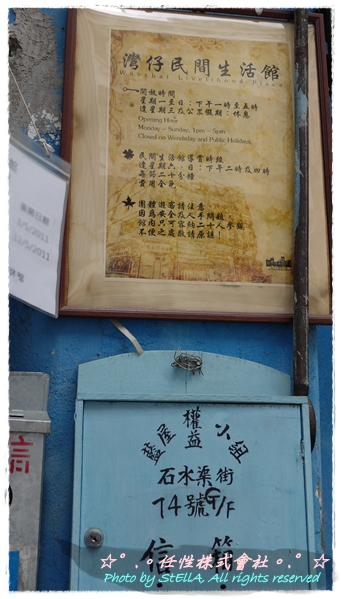 灣仔民間生活館
Wanchai Livelihood Place
開放時間
星期一至日：下午一時至五時
逢星期三及公眾假期：休息
Opening Hour
Monday – Sunday, 1pm – 5pm
Closed on Wendsday and Public Holidays
民間生活館導賞時段
逢星期六、日：下午二時及四時
每節二十分鐘
費用全免
團體遊客請注意
不便之處敬請原諒！
1/5/2011
/5/2011
信
藍屋權益小組
石水渠街
74號G/F
信箱
☆°.∘任性株式會社∘.°☆
Photo by StELLA, All rights reserved